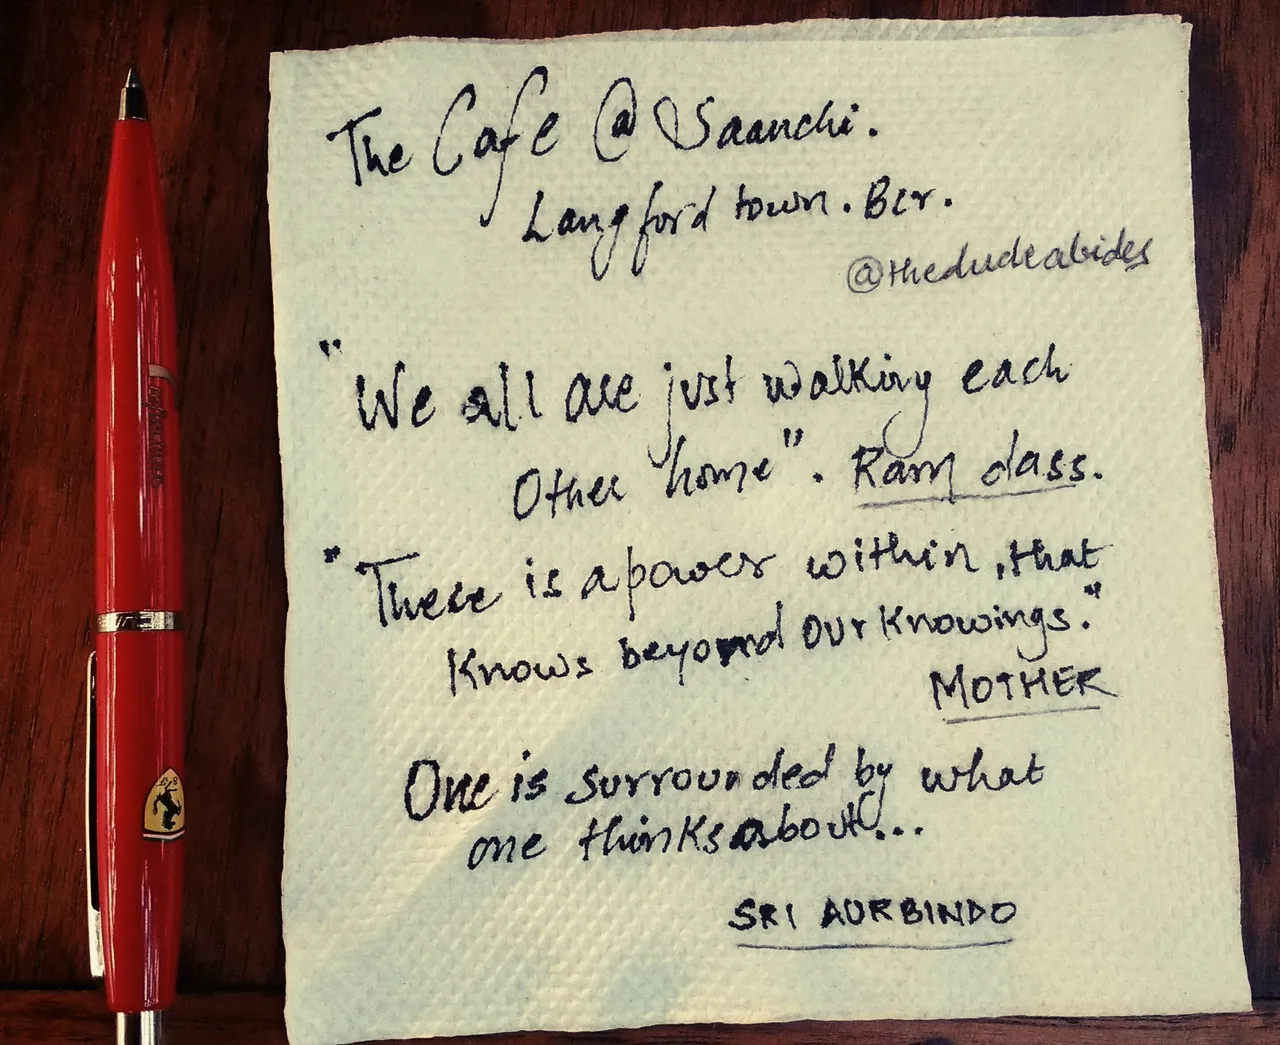 The Cafe @ Saanchi.
Langford town. Blr.
@thedudeabides
"We all are just walking each
Other home". Ram dass.
"There is a power within, that
Knows beyond our Knowings."
MOTHER
One is surrounded by what
one thinks about...
SRI AURBINDO